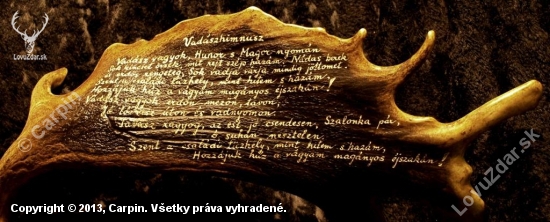 LovuZdar.sk
Vadászhimnusz
Vadász vagyok, Hunor s Magor nyomán
rejt szép hazám. Nádas berek
erdős rengeteg, Sok vadja várja mindig jöttömet.
családi tűzhely, mint hitem s hazám
Hozzájuk húz a vágyam magányos éjszakán!
Vadász vagyok erdőn mezőn, távon,
ülön és vadnyomon.
Tavasz ragyog, az est is csendesen, Szalonka pár,
a ruhán nesztelen
Szent a családi tűzhely, mint hitem s hazám,
Hozzájuk húz a vágyam magányos éjszakán!
© Carpin
LovuZdar.sk
Copyright © 2013, Carpin. Všetky práva vyhradené.